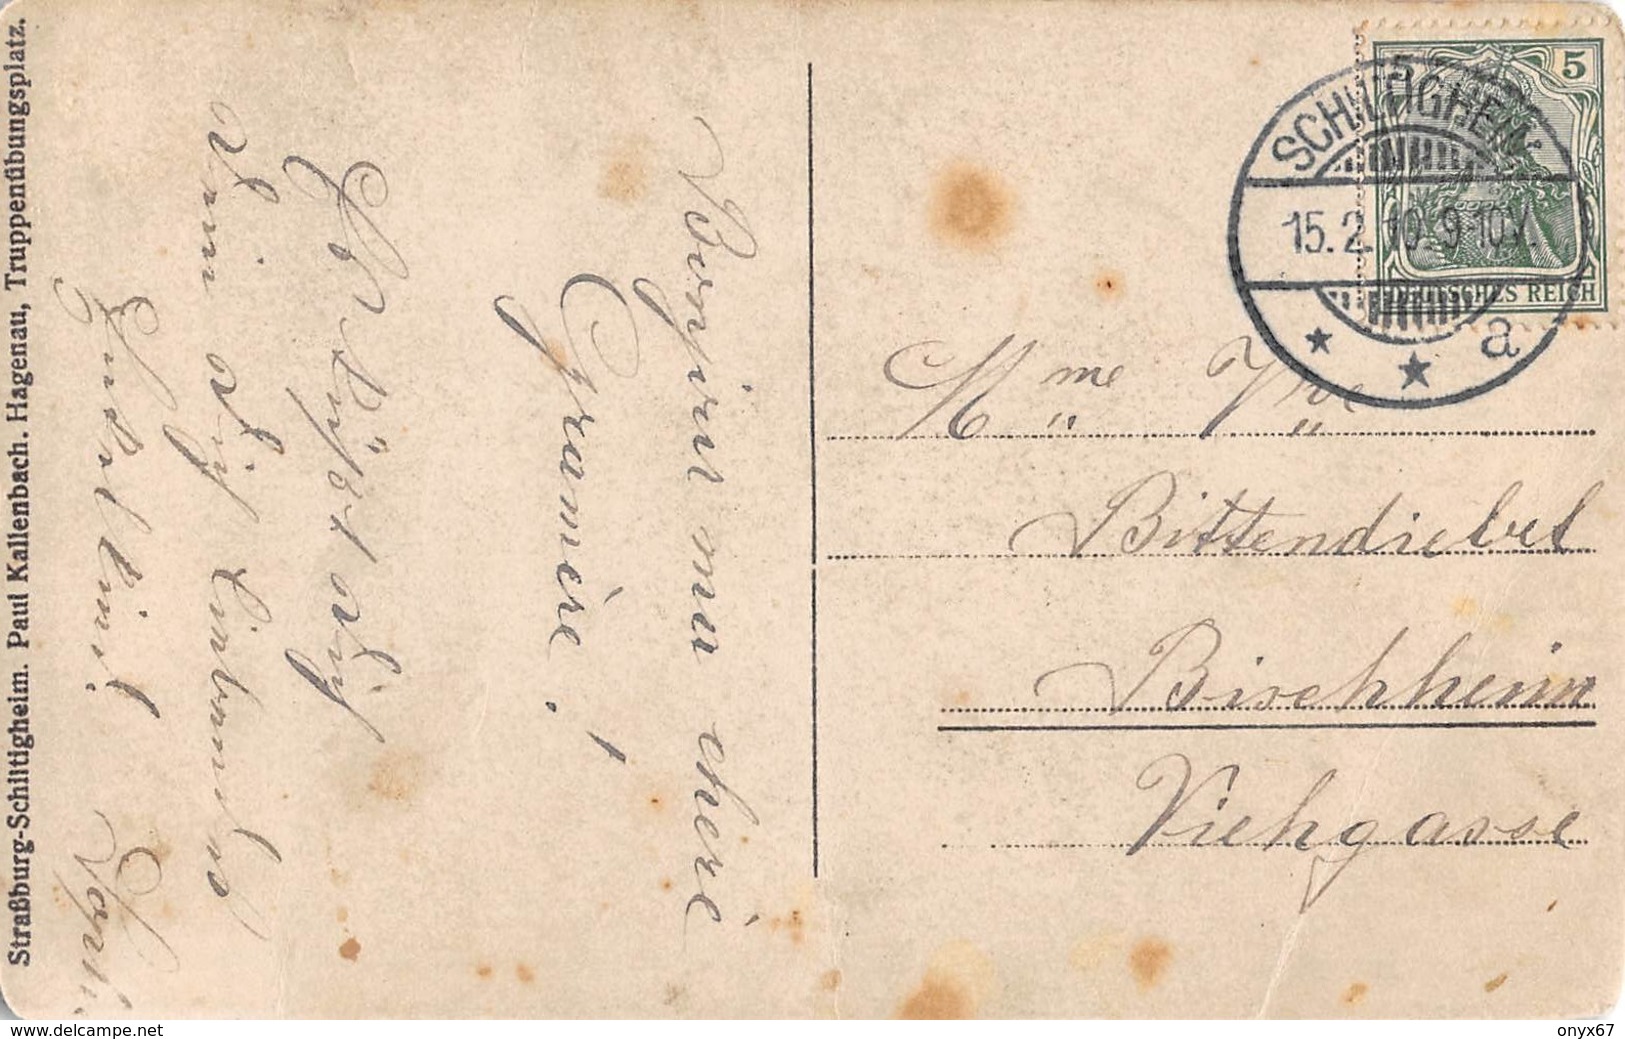 Straßburg-Schiltigheim. Paul Kallenbach. Hagenau, Truppenübungsplatz.
Bonjour ma chère
Gramère!
Es küßt dich
dich
SCHILTIGHEIM
15.2.10. 9-10V.
a
5
DEUTSCHES REICH
Mme Vve
Bittendiebel
Bischheim
Viehgasse
delcampe.net
onyx67